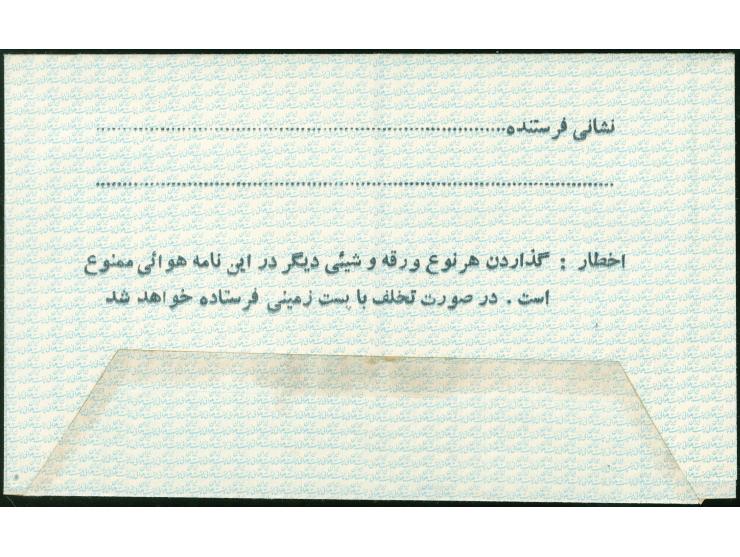 نشانی فرستنده
اخطار : گذاردن هر نوع ورقه و شیئی دیگر در این نامه هوائی ممنوع
است . در صورت تخلف با پست زمینی فرستاده خواهد شد